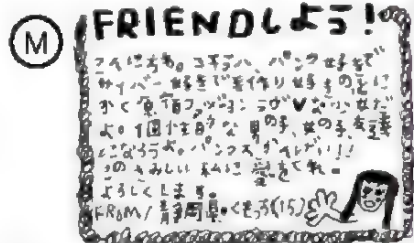 M
FRIENDしよう!
こんにちわ。コギャル、パンク好きで
サイバー好きで手作り好きのとに
かく原宿ファッションラヴ♥な少女だ
よ。個性的な男の子、女の子、友達
になろうよ。
このさみしい私に愛をくれ。
よろしくします。
FROM/静岡県・くまっち(15)